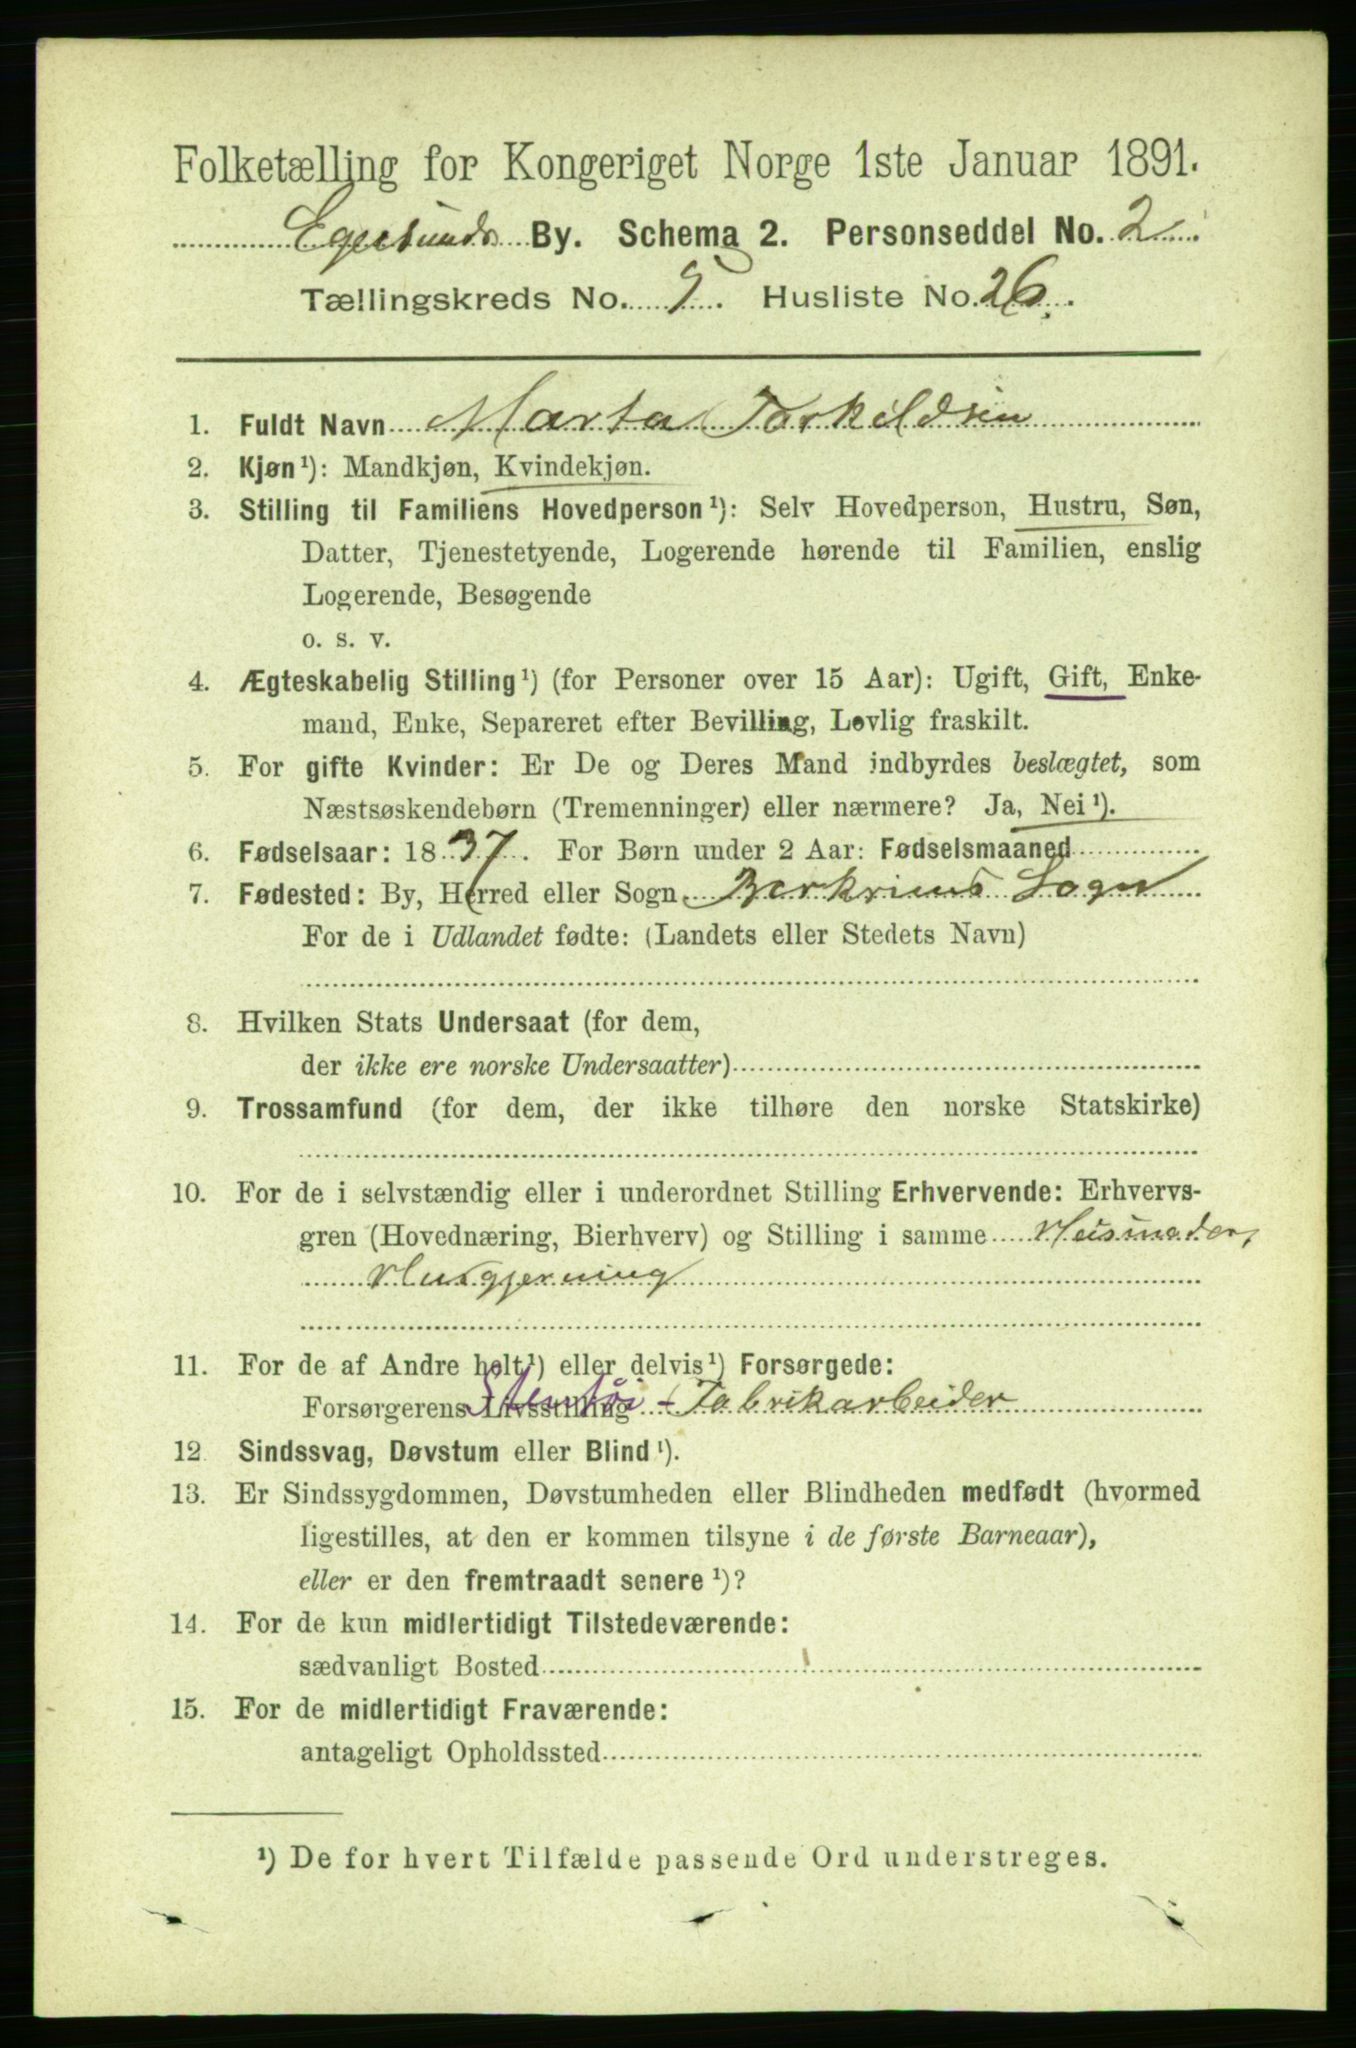 Folketælling for Kongeriget Norge 1ste Januar 1891.
Egersunds By. Schema 2. Personseddel No. 2
Tællingskreds No. 9. Husliste No. 26.
1. Fuldt Navn Marta Torkildsen
2. Kjøn¹): Mandkjøn, Kvindekjøn.
3. Stilling til Familiens Hovedperson¹): Selv Hovedperson, Hustru, Søn,
Datter, Tjenestetyende, Logerende hørende til Familien, enslig
Logerende, Besøgende
o. s. v.
4. Ægteskabelig Stilling¹) (for Personer over 15 Aar): Ugift, Gift, Enke-
mand, Enke, Separeret efter Bevilling, Lovlig fraskilt.
5. For gifte Kvinder: Er De og Deres Mand indbyrdes beslægtet, som
Næstsøskendebørn (Tremenninger) eller nærmere? Ja, Nei¹).
6. Fødselsaar: 1837. For Børn under 2 Aar: Fødselsmaaned
7. Fødested: By, Herred eller Sogn Berkrims Sogn
For de i Udlandet fødte: (Landets eller Stedets Navn)
8. Hvilken Stats Undersaat (for dem,
der ikke ere norske Undersaatter)
9. Trossamfund (for dem, der ikke tilhøre den norske Statskirke)
10. For de i selvstændig eller i underordnet Stilling Erhvervende: Erhvervs-
gren (Hovednæring, Bierhverv) og Stilling i samme Husmoder,
Husgjerning
11. For de af Andre helt¹) eller delvis¹) Forsørgede:
Forsørgerens Livsstilling Stentøi - Fabrikarbeider
12. Sindssvag, Døvstum eller Blind¹).
13. Er Sindssygdommen, Døvstumheden eller Blindheden medfødt (hvormed
ligestilles, at den er kommen tilsyne i de første Barneaar),
eller er den fremtraadt senere¹)?
14. For de kun midlertidigt Tilstedeværende:
sædvanligt Bosted
15. For de midlertidigt Fraværende:
antageligt Opholdssted
¹) De for hvert Tilfælde passende Ord understreges.